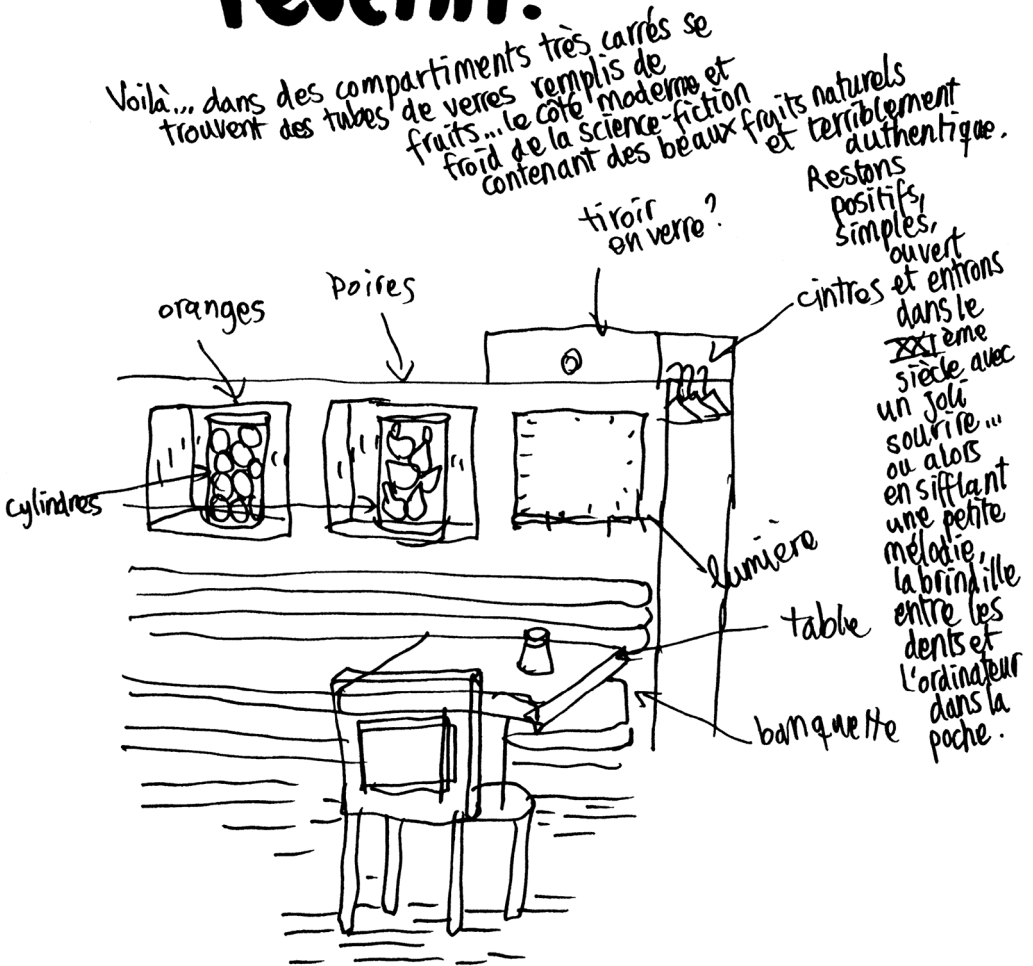 revenir.
Voilà... dans des compartiments très carrés se
trouvent des tubes de verres remplis de
fruits... le côté moderne et
froid de la science-fiction
contenant des beaux fruits naturels
et terriblement
authentique.
Restons
positifs,
simples,
ouvert
et entrons
dans le
XXIème
siècle avec
un joli
sourire...
ou alors
en sifflant
une petite
mélodie,
la brindille
entre les
dents et
l'ordinateur
dans la
poche.
tiroir
en verre?
cintres
oranges
Poires
cylindres
lumière
table
banquette